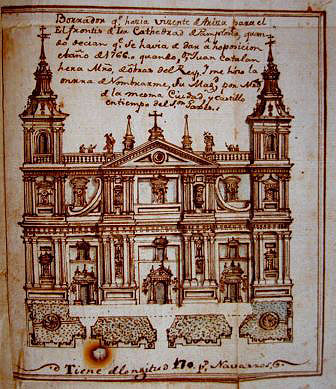 Borrador q.e hazia Vizente de Arizu para el
El frontis d la Cathedral de Pamplona, quan
do decian q.e se havia d dar a hoposicion
el año d 1766. quando, d.n Juan Catalan
hera Mro. d obras del Rey, y me hizo la
onrra d Nombrarme, Su Mag.d por
d la mesma Ciudad, y Castillo
en tiempo del
d Tiene d longitud 170. p.s Navarros,